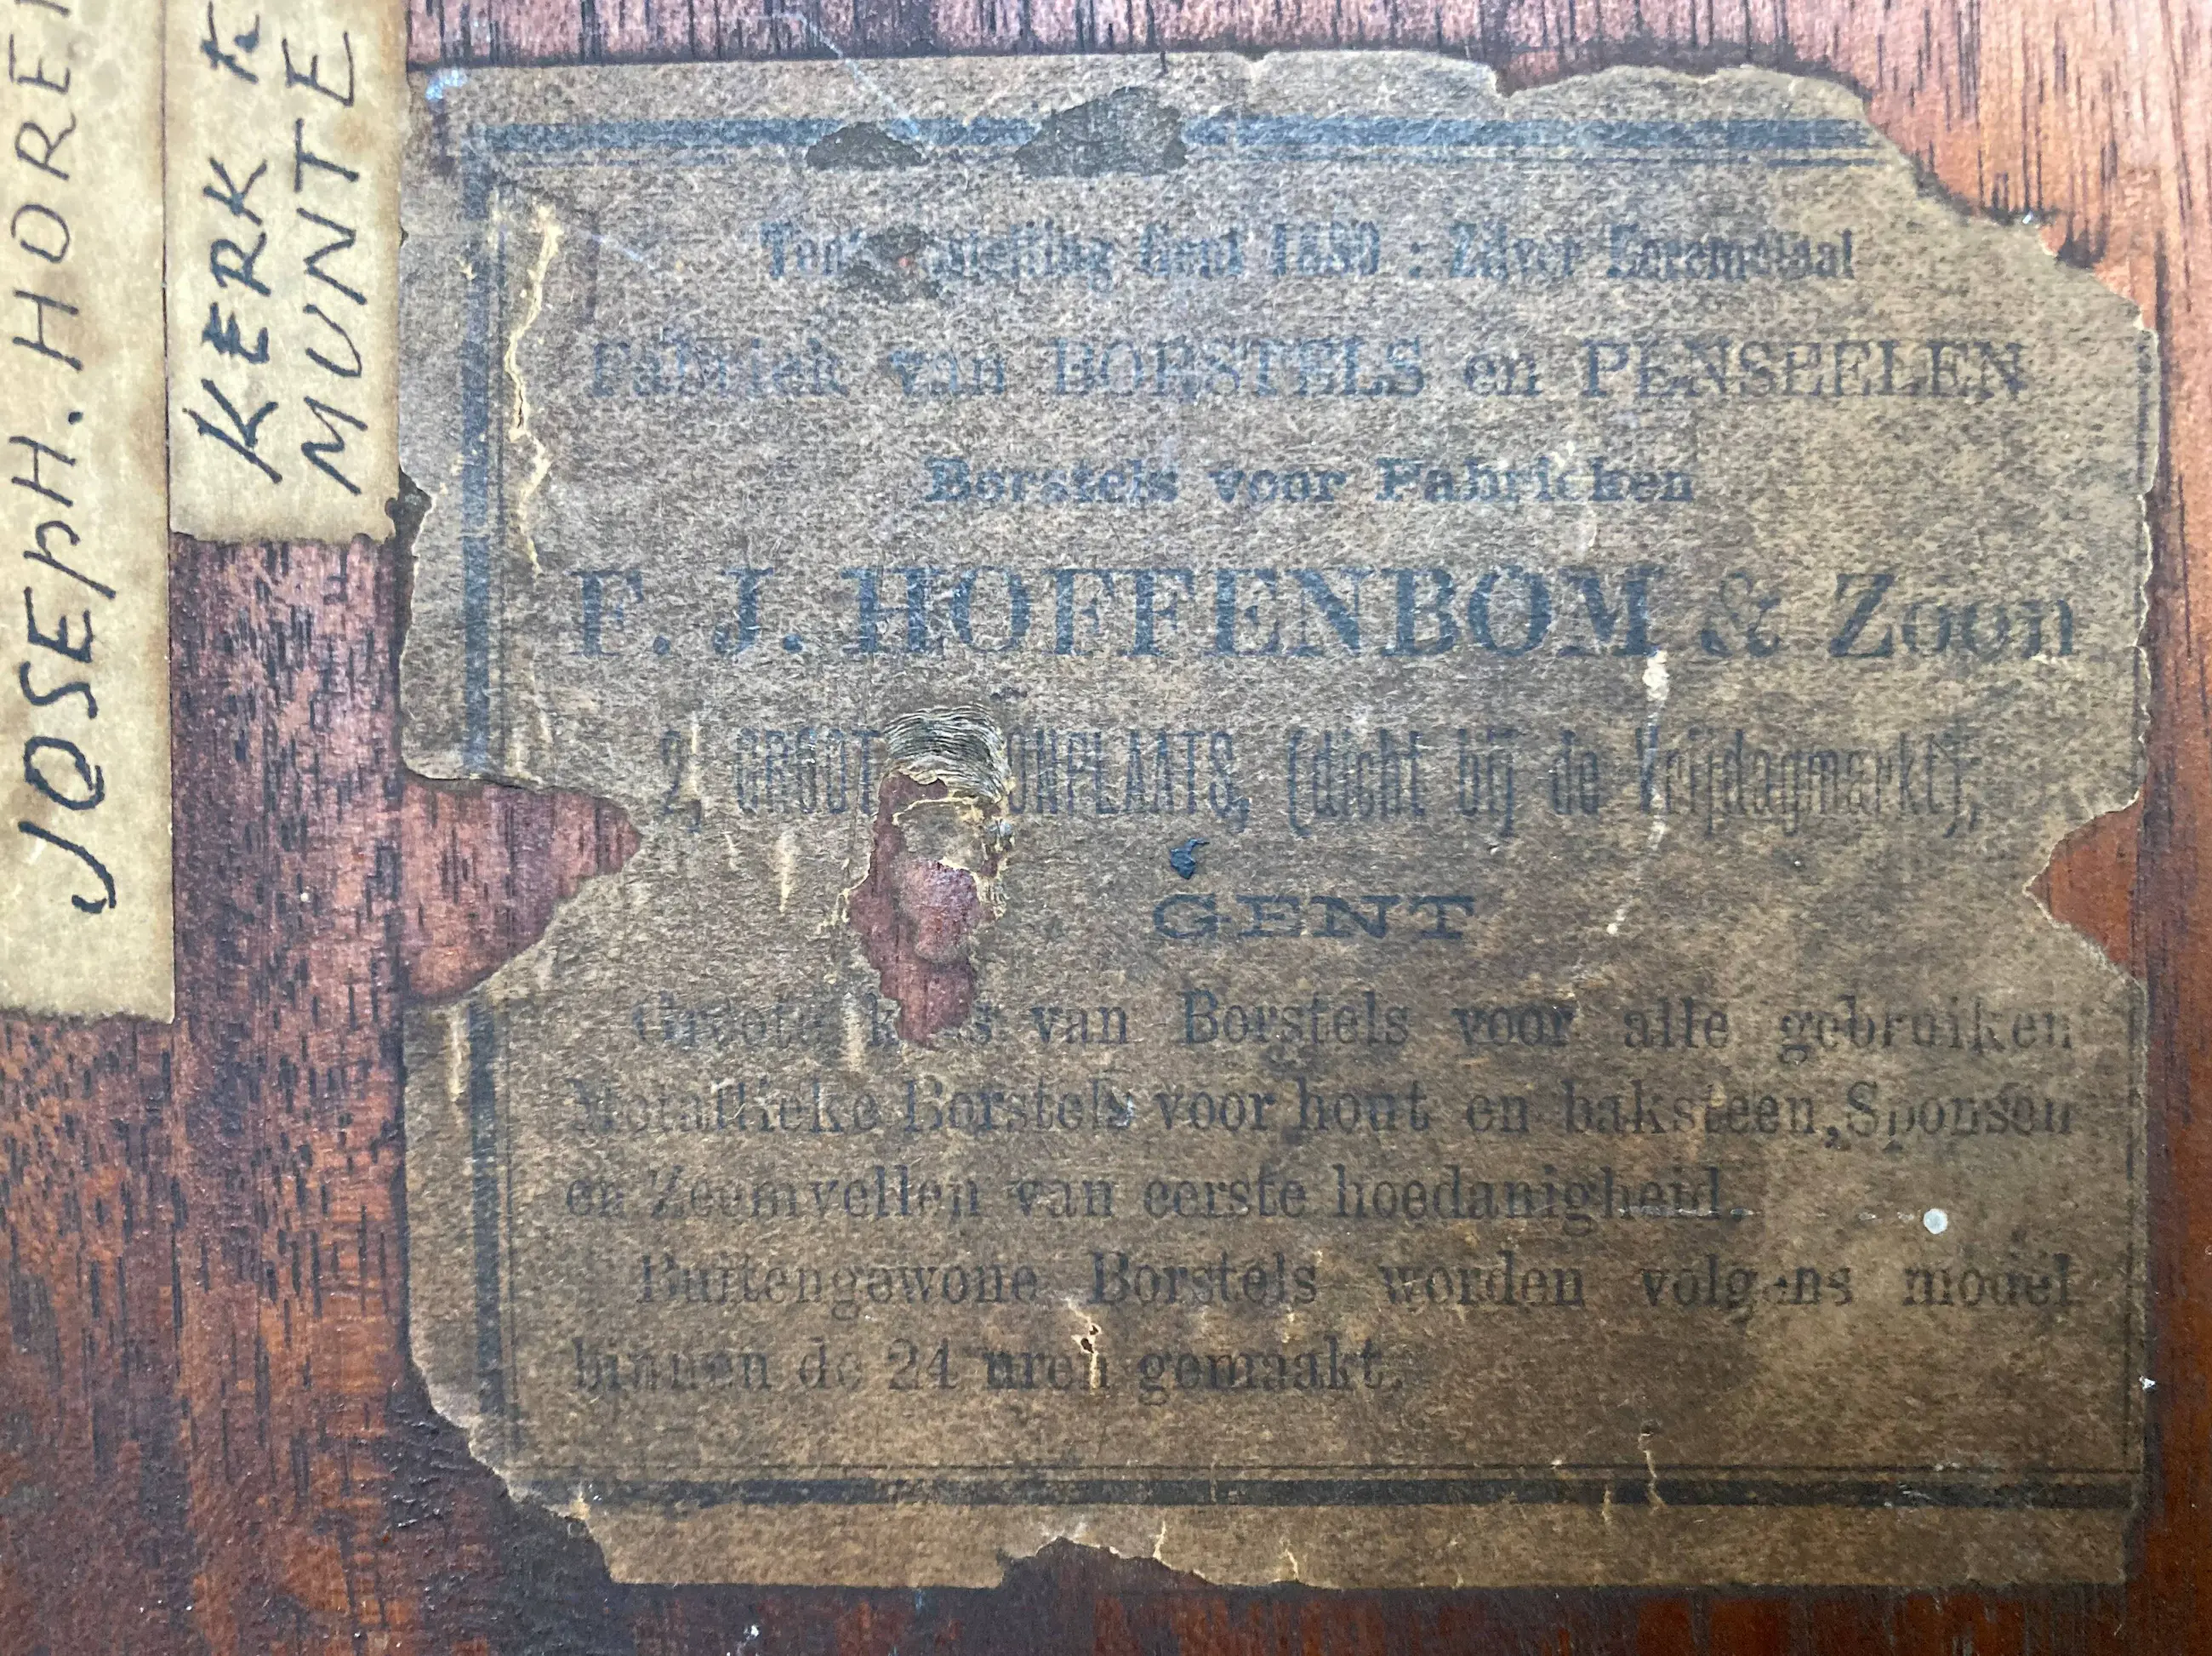 JOSEpH. HORE
KERK te
MUNTE
Gent : Zilver Eeremetaal
Fabriek van BORSTELS en PENSEELEN
Borstels voor Fabrieken
F. J. HOFFENBOM & Zoon
2, GROOT (dicht bij de Vrijdagmarkt),
GENT
Groote van Borstels voor alle gebruiken
Metallieke Borstels voor hout en baksteen, Sponsen
en Zeemvellen van eerste hoedanigheid.
Buitengewone Borstels worden volgens model
binnen de 24 uren gemaakt.